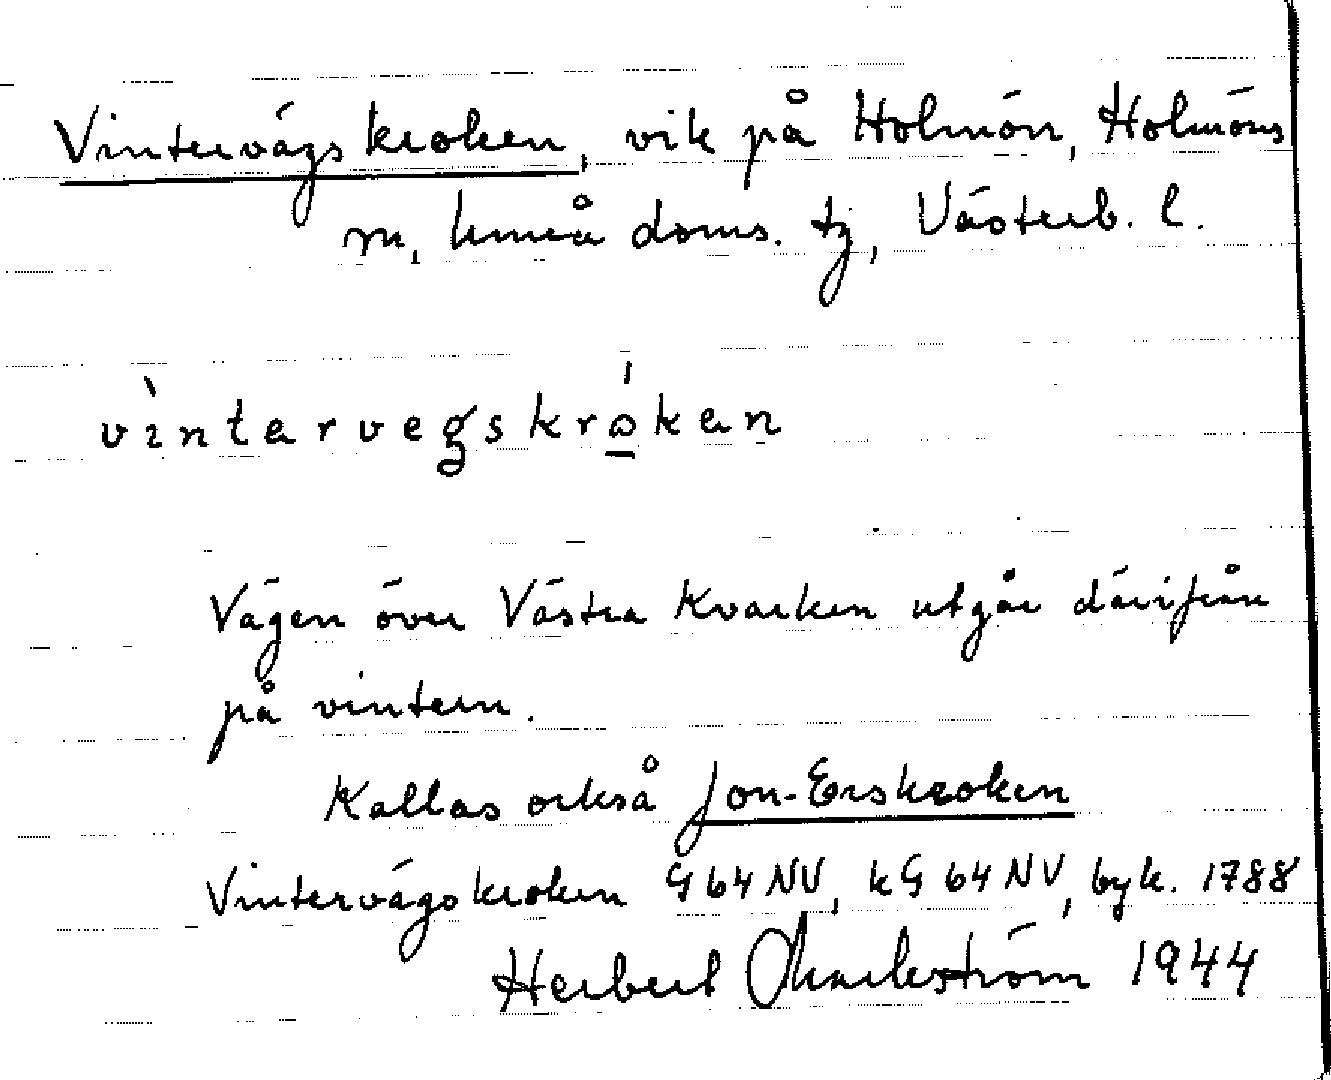 Vintervägskroken, vik på Holmön, Holmöns
sn, Umeå doms. tj, Västerb. l.
vìntarvegskrǫ́kan
Vägen över Västra Kvarken utgår därifrån
på vintern.
Kallas också Jon-Erskroken
Vintervägskroken G 64 NV, kG 64 NV, byk. 1788
Herbert Markström 1944